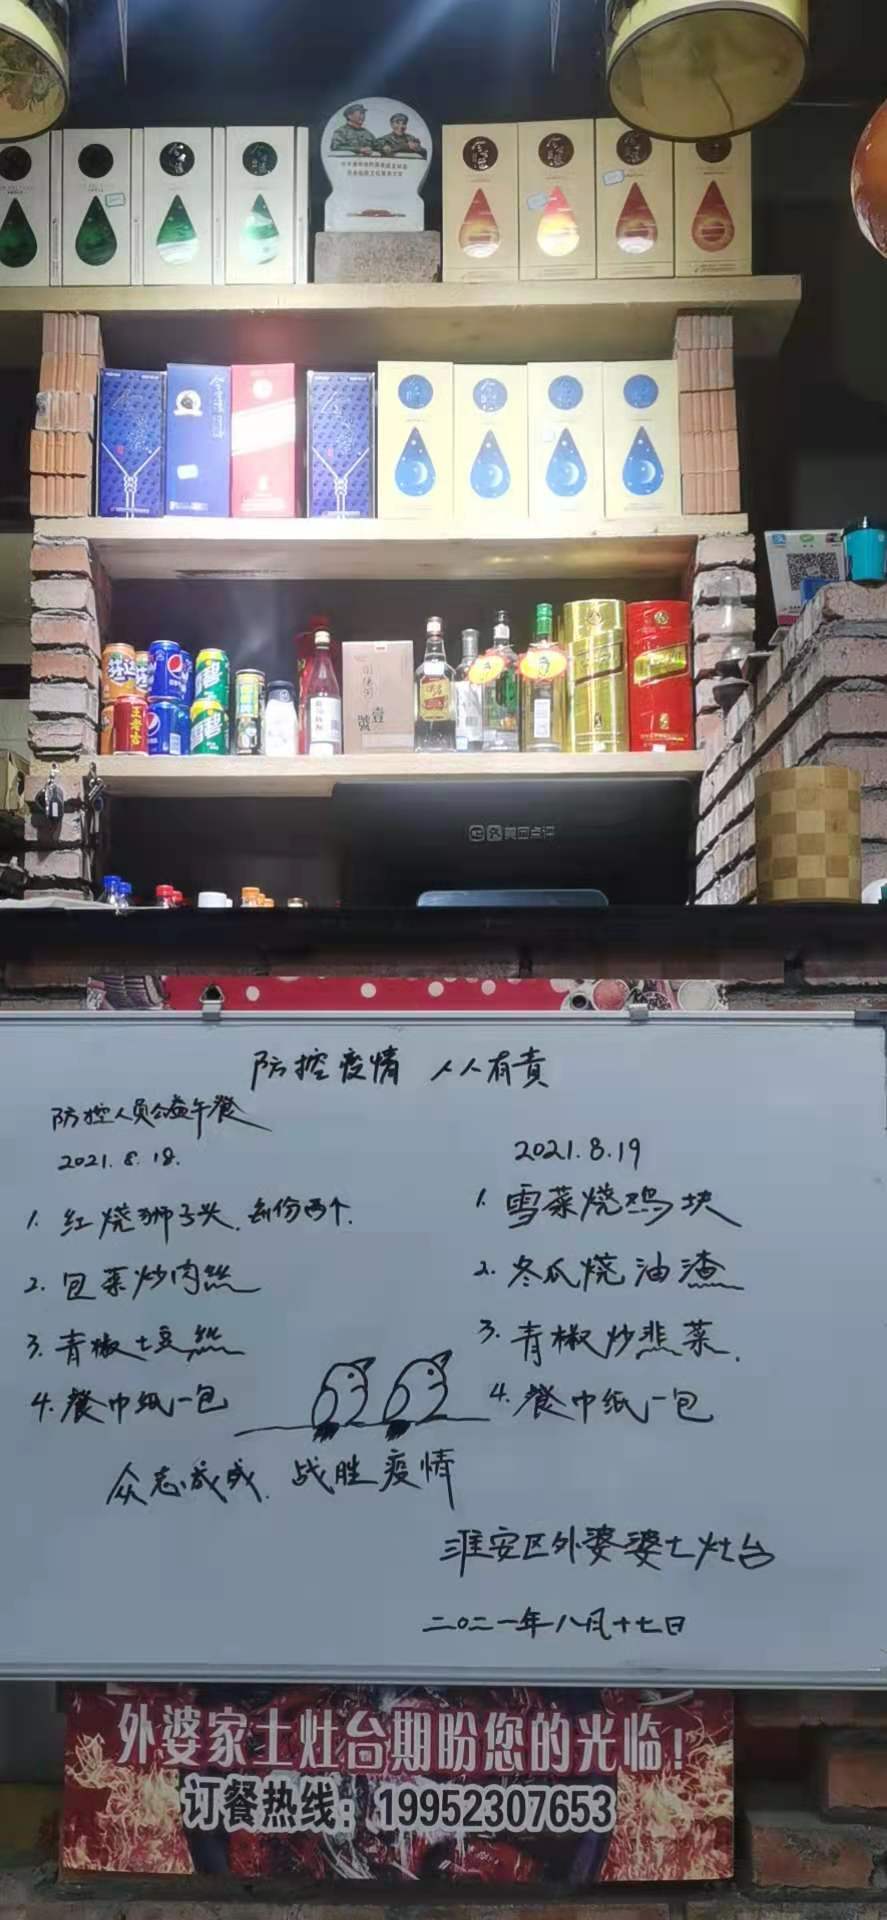 王老吉
壹號
美团点评
防控疫情 人人有责
防控人员公益午餐
2021.8.18.
1. 红烧狮子头.每份两个.
2. 包菜炒肉丝
3. 青椒土豆丝
4. 餐巾纸一包
2021.8.19
1. 雪菜烧鸡块
2. 冬瓜烧油渣
3. 青椒炒韭菜.
4. 餐巾纸一包
众志成城. 战胜疫情
淮安区外婆婆土灶台
二〇二一年八月十七日
外婆家土灶台期盼您的光临!
订餐热线:19952307653